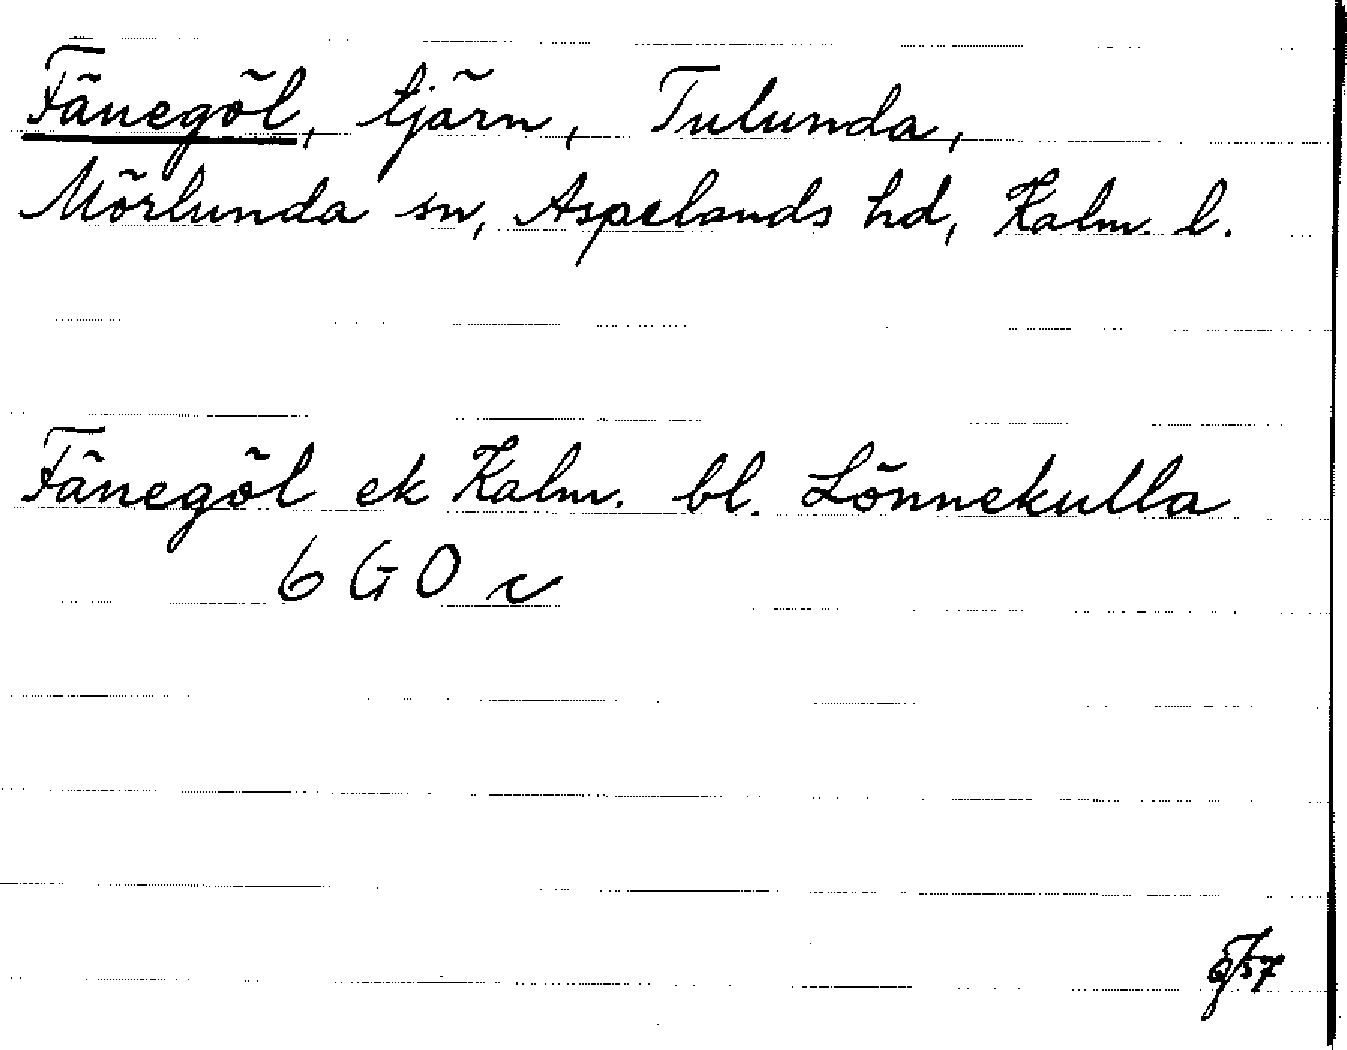 Fänegöl, tjärn, Tulunda,
Mörlunda sn, Aspelands hd, Kalm. l.
Fänegöl ek Kalm. bl. Lönnekulla
6 G O c